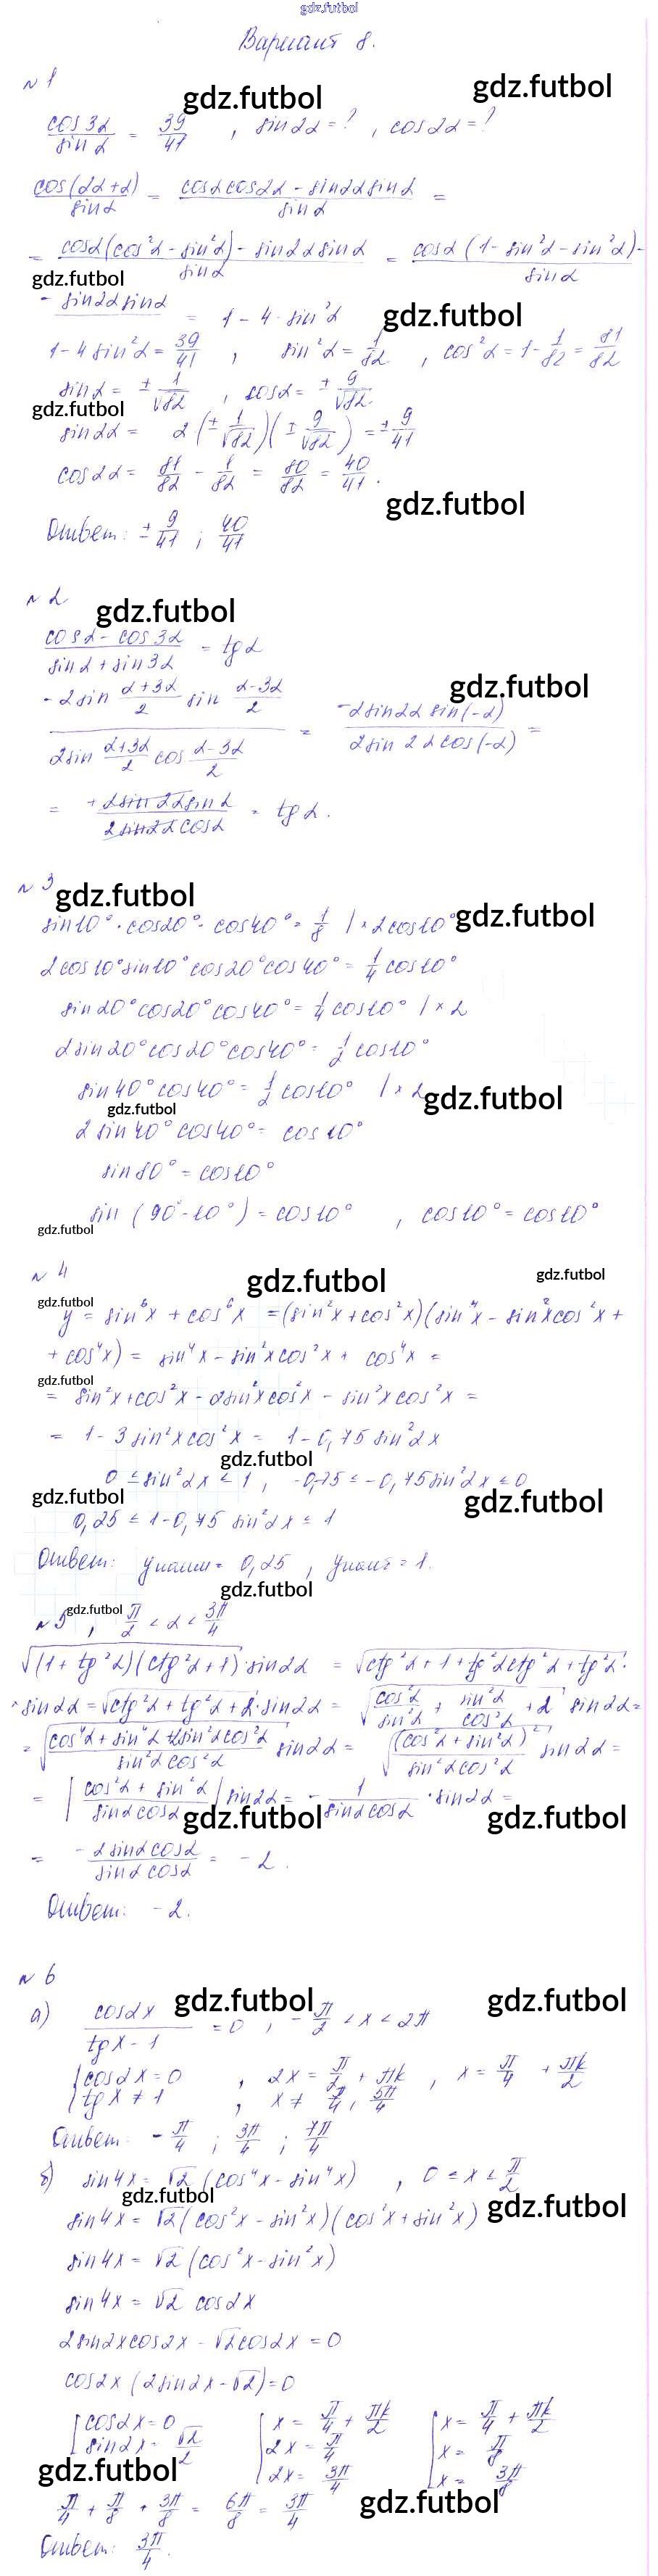 gdz.futbol
Вариант 8.
№ 1
gdz.futbol gdz.futbol
cos3α/sinα = 39/41 , sin2α = ? , cos2α = ?
cos(2α+α)/sinα = (cosαcos2α - sin2αsinα)/sinα =
= (cosα(cos²α - sin²α) - sin2αsinα)/sinα = (cosα(1 - sin²α - sin²α) -
gdz.futbol
- sin2αsinα)/ = 1 - 4·sin²α gdz.futbol
1 - 4sin²α = 39/41 , sin²α = 1/82 , cos²α = 1 - 1/82 = 81/82
sinα = ± 1/√82 , cosα = ± 9/√82
gdz.futbol
sin2α = 2(± 1/√82)(± 9/√82) = ± 9/41
cos2α = 81/82 - 1/82 = 80/82 = 40/41.
gdz.futbol
Ответ: ± 9/41 ; 40/41
№ 2
gdz.futbol
(cosα - cos3α)/(sinα + sin3α) = tgα
gdz.futbol
(-2sin (α+3α)/2 sin (α-3α)/2)/(2sin (α+3α)/2 cos (α-3α)/2) = (-2sin2α sin(-α))/(2sin2αcos(-α)) =
= (+2sin2αsinα)/(2sin2αcosα) = tgα.
№ 3
gdz.futbol gdz.futbol
sin10°·cos20°·cos40° = 1/8 | × 2cos10°
2cos10°sin10°cos20°cos40° = 1/4 cos10°
sin20°cos20°cos40° = 1/4 cos10° | × 2
2sin20°cos20°cos40° = 1/2 cos10°
sin40°cos40° = 1/2 cos10° | × 2
gdz.futbol gdz.futbol
2sin40°cos40° = cos10°
sin80° = cos10°
sin(90°-10°) = cos10° , cos10° = cos10°
gdz.futbol
№ 4
gdz.futbol gdz.futbol
gdz.futbol
y = sin⁶x + cos⁶x = (sin²x + cos²x)(sin⁴x - sin²xcos²x +
+ cos⁴x) = sin⁴x - sin²xcos²x + cos⁴x =
gdz.futbol
= sin²x + cos²x - 2sin²xcos²x - sin²xcos²x =
= 1 - 3sin²xcos²x = 1 - 0,75sin²2x
gdz.futbol
0 ≤ sin²2x ≤ 1 , -0,75 ≤ -0,75sin²2x ≤ 0
gdz.futbol gdz.futbol
0,25 ≤ 1 - 0,75sin²2x ≤ 1
Ответ: yнаим = 0,25 , yнаиб = 1.
gdz.futbol
№ 5 gdz.futbol , π/2 < α < 3π/4
√((1 + tg²α)(ctg²α + 1))·sin2α = √(ctg²α + 1 + tg²αctg²α + tg²α)·
·sin2α = √(ctg²α + tg²α + 2)·sin2α = √(cos²α/sin²α + sin²α/cos²α + 2) sin2α =
= √((cos⁴α + sin⁴α + 2sin²αcos²α)/(sin²αcos²α)) sin2α = √((cos²α + sin²α)²/(sin²αcos²α)) sin2α =
= |(cos²α + sin²α)/(sinαcosα)| sin2α = - 1/(sinαcosα)·sin2α =
gdz.futbol gdz.futbol
= (-2sinαcosα)/(sinαcosα) = -2.
Ответ: -2.
№ 6
gdz.futbol gdz.futbol
а) cos2x/(tgx - 1) = 0 , -π/2 < x < 2π
{cos2x = 0 , 2x = π/2 + πk , x = π/4 + πk/2
{tgx ≠ 1 , x ≠ π/4, 5π/4
Ответ: -π/4 ; 3π/4 ; 7π/4
б) sin4x = √2(cos⁴x - sin⁴x) , 0 ≤ x ≤ π/2
gdz.futbol gdz.futbol
sin4x = √2(cos²x - sin²x)(cos²x + sin²x)
sin4x = √2(cos²x - sin²x)
sin4x = √2 cos2x
2sin2xcos2x - √2cos2x = 0
cos2x(2sin2x - √2) = 0
[cos2x = 0 [x = π/4 + πk/2 [x = π/4 + πk/2
[sin2x = √2/2 [2x = π/4 [x = π/8
[2x = 3π/4 [x = 3π/8
gdz.futbol gdz.futbol
π/4 + π/8 + 3π/8 = 6π/8 = 3π/4
Ответ: 3π/4.